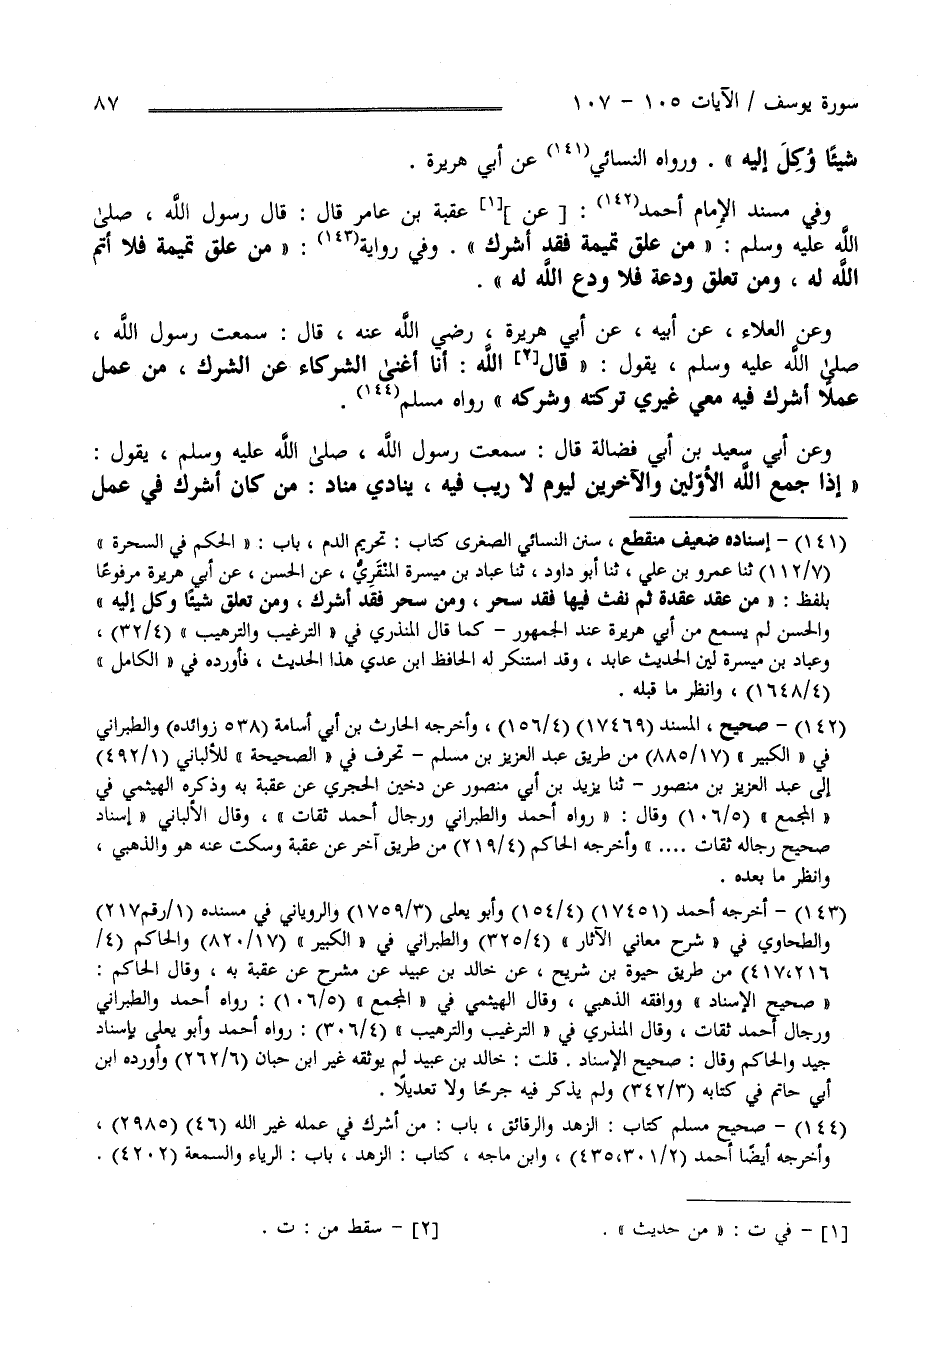 سورة يوسف / الآيات ١٠٥ - ١٠٧ ٨٧
شيئًا وُكِلَ إليه » . ورواه النسائي(١٤١) عن أبي هريرة .
وفي مسند الإمام أحمد(١٤٢) : [ عن ][١] عقبة بن عامر قال : قال رسول اللَّه ، صلىٰ
اللَّه عليه وسلم : « من علق تميمة فقد أشرك » . وفي رواية(١٤٣) : « من علق تميمة فلا أتم
اللَّه له ، ومن تعلق ودعة فلا ودع اللَّه له » .
وعن العلاء ، عن أبيه ، عن أبي هريرة ، رضي اللَّه عنه ، قال : سمعت رسول اللَّه ،
صلىٰ اللَّه عليه وسلم ، يقول : « قال[٢] اللَّه : أنا أغنىٰ الشركاء عن الشرك ، من عمل
عملًا أشرك فيه معي غيري تركته وشركه » رواه مسلم(١٤٤) .
وعن أبي سعيد بن أبي فضالة قال : سمعت رسول اللَّه ، صلىٰ اللَّه عليه وسلم ، يقول :
« إذا جمع اللَّه الأوّلين والآخرين ليوم لا ريب فيه ، ينادي مناد : من كان أشرك في عمل
(١٤١) - إسناده ضعيف منقطع ، سنن النسائي الصغرى كتاب : تحريم الدم ، باب : « الحكم في السحرة »
(١١٢/٧) ثنا عمرو بن علي ، ثنا أبو داود ، ثنا عباد بن ميسرة المنْقَرِيُّ ، عن الحسن ، عن أبي هريرة مرفوعًا
بلفظ : « من عقد عقدة ثم نفث فيها فقد سحر ، ومن سحر فقد أشرك ، ومن تعلق شيئًا وكل إليه »
والحسن لم يسمع من أبي هريرة عند الجمهور - كما قال المنذري في « الترغيب والترهيب » (٣٢/٤) ،
وعباد بن ميسرة لين الحديث عابد ، وقد استنكر له الحافظ ابن عدي هذا الحديث ، فأورده في « الكامل »
(١٦٤٨/٤) ، وانظر ما قبله .
(١٤٢) - صحيح ، المسند (١٧٤٦٩) (١٥٦/٤) ، وأخرجه الحارث بن أبي أسامة (٥٣٨ زوائده) والطبراني
في « الكبير » (٨٨٥/١٧) من طريق عبد العزيز بن مسلم - تحرف في « الصحيحة » للألباني (٤٩٢/١)
إلى عبد العزيز بن منصور - ثنا يزيد بن أبي منصور عن دخين الحجري عن عقبة به وذكره الهيثمي في
« المجمع » (١٠٦/٥) وقال : « رواه أحمد والطبراني ورجال أحمد ثقات » ، وقال الألباني « إسناد
صحيح رجاله ثقات .... » وأخرجه الحاكم (٢١٩/٤) من طريق آخر عن عقبة وسكت عنه هو والذهبي ،
وانظر ما بعده .
(١٤٣) - أخرجه أحمد (١٧٤٥١) (١٥٤/٤) وأبو يعلى (١٧٥٩/٣) والروياني في مسنده (١/رقم٢١٧)
والطحاوي في « شرح معاني الآثار » (٣٢٥/٤) والطبراني في « الكبير » (٨٢٠/١٧) والحاكم (٤/
٤١٧،٢١٦) من طريق حيوة بن شريح ، عن خالد بن عبيد عن مشرح عن عقبة به ، وقال الحاكم :
« صحيح الإسناد » ووافقه الذهبي ، وقال الهيثمي في « المجمع » (١٠٦/٥) : رواه أحمد والطبراني
ورجال أحمد ثقات ، وقال المنذري في « الترغيب والترهيب » (٣٠٦/٤) : رواه أحمد وأبو يعلى بإسناد
جيد والحاكم وقال : صحيح الإسناد . قلت : خالد بن عبيد لم يوثقه غير ابن حبان (٢٦٢/٦) وأورده ابن
أبي حاتم في كتابه (٣٤٢/٣) ولم يذكر فيه جرحًا ولا تعديلًا .
(١٤٤) - صحيح مسلم كتاب : الزهد والرقائق ، باب : من أشرك في عمله غير الله (٤٦) (٢٩٨٥) ،
وأخرجه أيضًا أحمد (٤٣٥،٣٠١/٢) ، وابن ماجه ، كتاب : الزهد ، باب : الرياء والسمعة (٤٢٠٢) .
[١] - في ت : « من حديث » . [٢] - سقط من : ت .